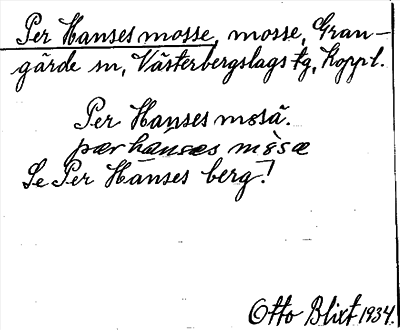 Per Hanses mosse, mosse, Gran-
gärde sn, Västerbergslags tg, Koppl.
Per Hanses mosä.
pær hanses mòsæ
Se Per Hanses berg!
Otto Blixt 1934.